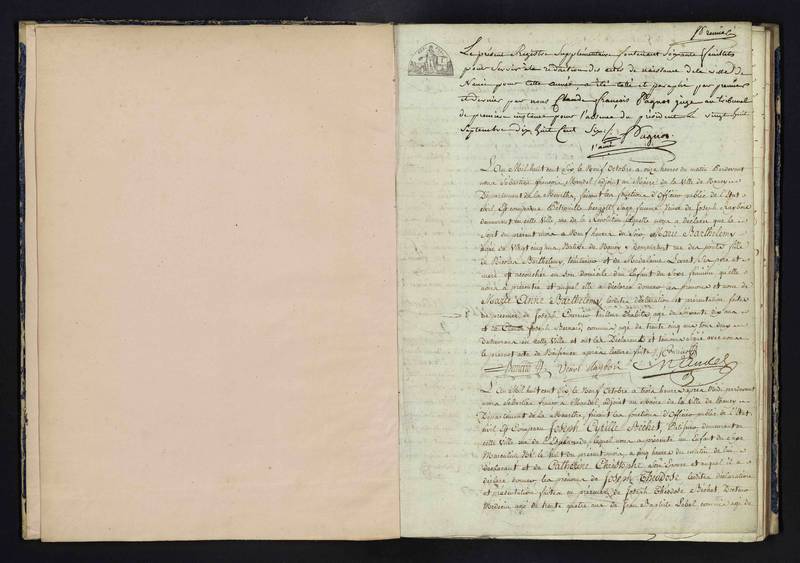 Premier
Le présent Registre Supplémentaire contenant Soixante feuillets
pour Servir à la rédaction des actes de naissance de la ville de
Nancy pour cette année, a été coté et paraphé par premier
et dernier par nous Claude François Pagnot juge au tribunal
de première instance pour l'absence du président le vingt huit
Septembre dix huit Cent Six
Pagnot
L'An Mil huit cent Six le Neuf Octobre a onze heures du matin Pardevant
nous Sébastien François Mandel, adjoint au Maire de la Ville de Nancy
Département de la Meurthe, faisant les fonctions d'Officier public de l'Etat
civil Est comparue Pétronille Sage femme de Joseph
demeurant en cette Ville, rue de la Révolution laquelle nous a déclaré que le
Sept du présent mois a Neuf heures du Soir, Marie Barthelemy
âgée de Vingt cinq ans, Native de Nancy, rue des fille
de Nicolas Barthelemy, et de Madelaine ses père et
mère est accouchée en son domicile d'un Enfant du Sexe féminin qu'elle
nous a présenté et auquel elle a déclaré donner les prénoms et nom de
Marie Anne Barthelemy, lesdites déclaration et présentation faites
en présence de Joseph tailleur d'habits, agé de Soixante dix ans
et de Joseph Bernard, commis, agé de trente cinq ans tous deux
demeurans en cette Ville et ont les Déclarante et témoins signé avec nous
le présent acte de Naissance après lecture faite
Mandel
L'An Mil huit cent Six le Neuf Octobre a trois heures après Midi pardevant
nous Sébastien François Mandel, adjoint au Maire de la Ville de Nancy
Département de la Meurthe, faisant les fonctions d'Officier public de l'Etat
civil Est Comparu Joseph Cyrille Béchet, Patissier, demeurant en
cette Ville rue de l'Esplanade, lequel nous a présenté un Enfant du Sexe
Masculin Né le huit du présent mois, a cinq heures du matin de lui
déclarant et de Catherine Christophe Son Epouse et auquel il a
déclaré donner les prénoms de Joseph Théodose lesdites déclaration
et présentation faites en présence de Joseph Théodose Béchet, Docteur
Médecin agé de trente quatre ans de Jean Baptiste Lebel, commis agé de